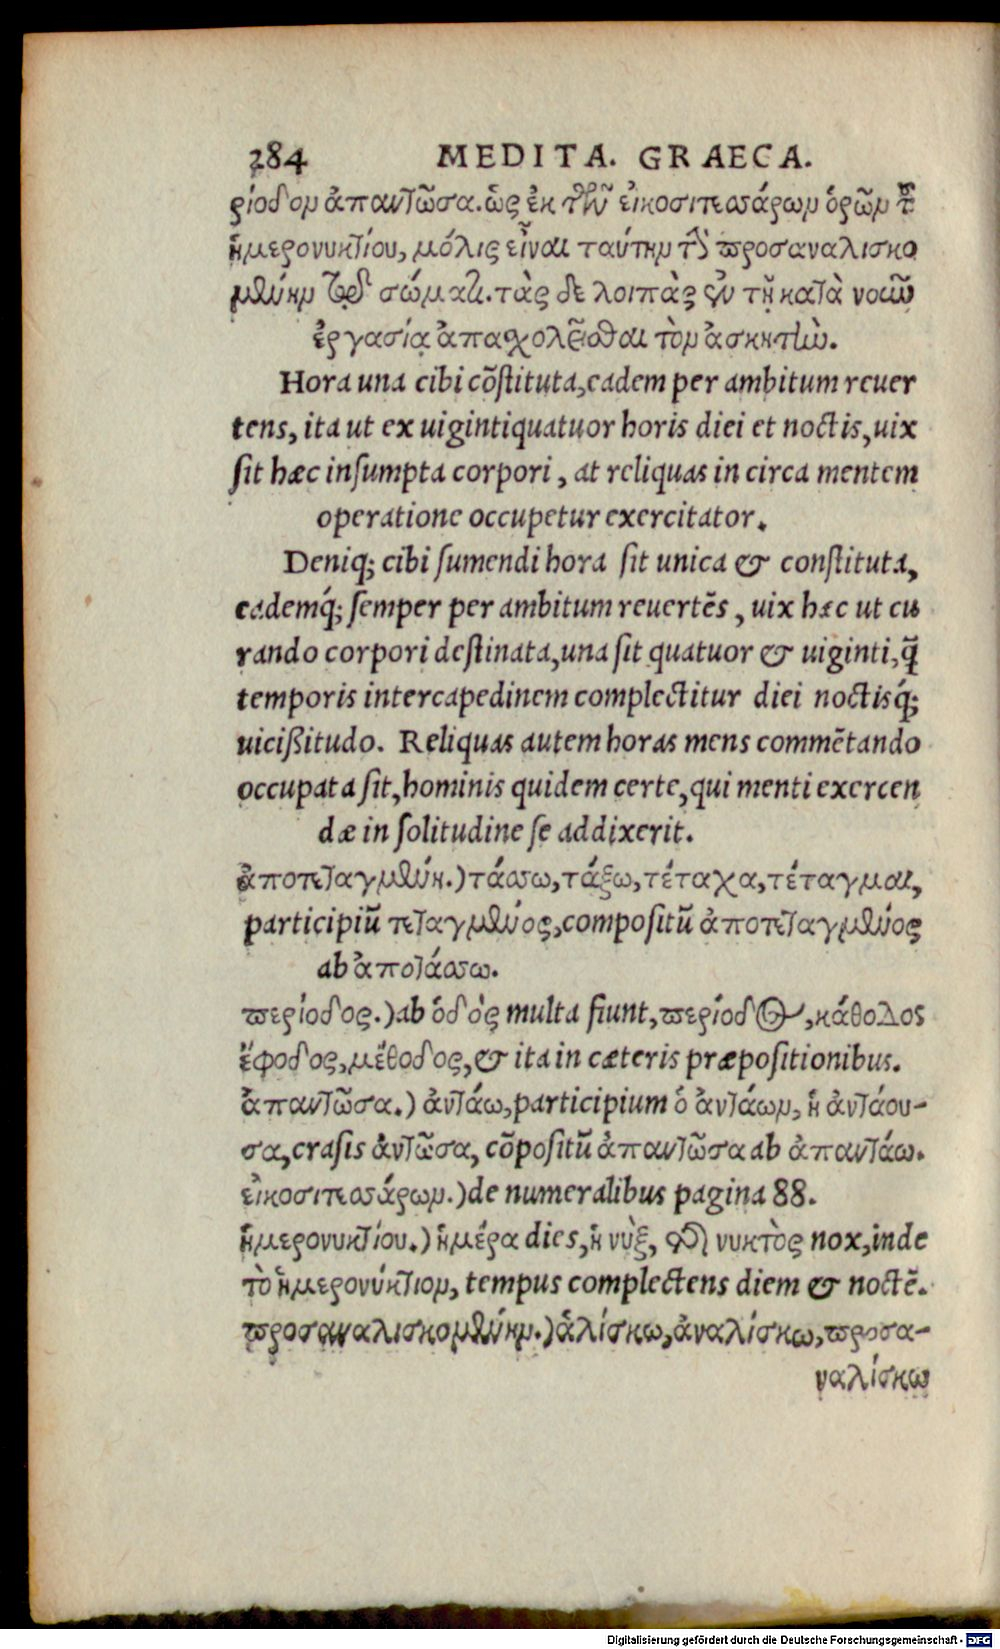 284 MEDITA. GRAECA.
ρίοδον ἀπαντῶσα. ὡς ἐκ τῶν εἰκοσιτεσσάρων ὁρῶν τ῀
ἡμερονυκτίου, μόλις εἶναι ταύτην τὴν προσαναλισκο
μένην τῷ σώματι. τὰς δε λοιπὰς ἐν τῇ κατὰ νοῦν
ἐργασίᾳ ἀπασχολεῖσθαι τὸν ἀσκητὴν.
Hora una cibi cõstituta, eadem per ambitum reuer
tens, ita ut ex uigintiquatuor horis diei et noctis, uix
sit hæc insumpta corpori, at reliquas in circa mentem
operatione occupetur exercitator.
Deniq; cibi sumendi hora sit unica & constituta,
eademq́; semper per ambitum reuertẽs, uix hæc ut cu
rando corpori destinata, una sit quatuor & uiginti, q̃
temporis intercapedinem complectitur diei noctisq́;
uicißitudo. Reliquas autem horas mens commẽtando
occupata sit, hominis quidem certe, qui menti exercen
dæ in solitudine se addixerit.
ἀποτεταγμένη.) τάσσω, τάξω, τέταχα, τέταγμαι,
participiũ τεταγμένος, compositũ ἀποτεταγμένος
ab ἀποτάσσω.
περίοδος.) ab ὁδὸς multa fiunt, περίοδος, κάθοδος
ἔφοδος, μέθοδος, & ita in cæteris præpositionibus.
ἀπαντῶσα.) ἀντάω, participium ὁ ἀντάων, ἡ ἀντάου-
σα, crasis ἀντῶσα, cõpositũ ἀπαντῶσα ab ἀπαντάω.
εἰκοσιτεσσάρων.) de numeralibus pagina 88.
ἡμερονυκτίου.) ἡμέρα dies, ἡ νὺξ, τῆς νυκτὸς nox, inde
τὸ ἡμερονύκτιον, tempus complectens diem & noctẽ.
προσαναλισκομένην.) ἁλίσκω, ἀναλίσκω, προσα-
ναλίσκω
Digitalisierung gefördert durch die Deutsche Forschungsgemeinschaft - DFG